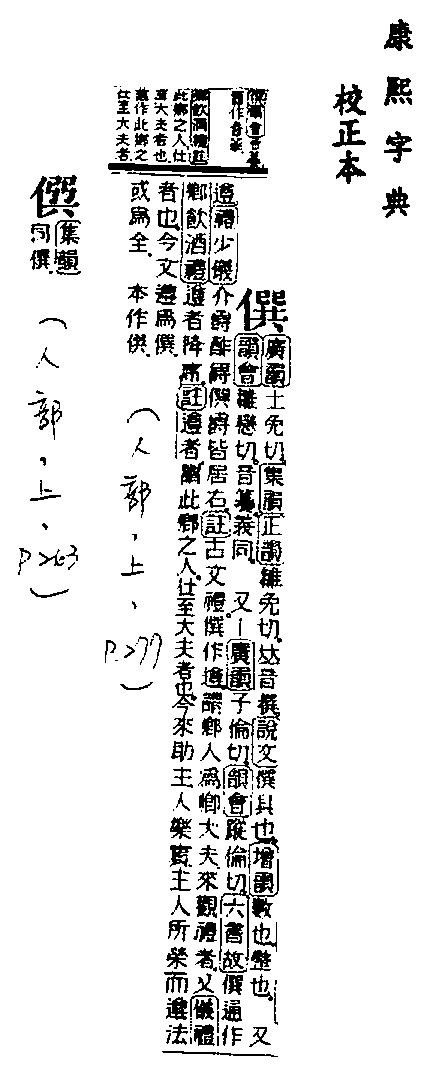 康熙字典
校正本
僎
廣韻士免切集韻正韻雛免切𠀤音撰說文僎具也增韻數也整也 又
韻會雛戀切音饌義同 又廣韻子倫切韻會蹤倫切六書故僎通作
遵禮少儀介爵酢爵僎爵皆居右註古文禮僎作遵謂鄉人爲鄉大夫來觀禮者又儀禮
鄉飲酒禮遵者降席註遵者謂此鄉之人仕至大夫者也今來助主人樂賓主人所榮而遵法
者也今文遵爲僎
或爲全 本作僎
鄉飲酒禮註
此鄉之人仕
至大夫者也
舊作此鄉之
仕至大夫者
(人部,上,P.277)
僎
集韻
同僎
(人部,上,P263)